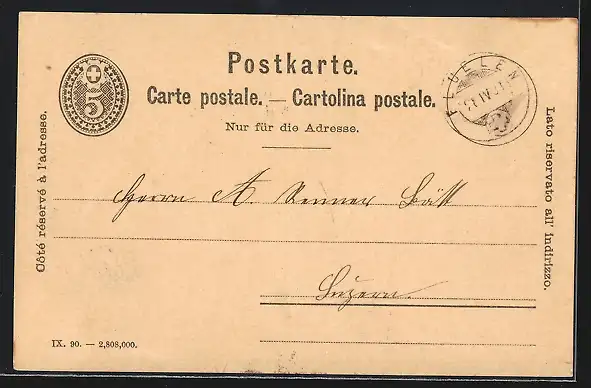 5
Postkarte.
Carte postale. — Cartolina postale.
Nur für die Adresse.
FLUELEN
Côté réservé à l'adresse.
Lato riservato all' indirizzo.
Herrn A.
Luzern.
IX. 90. — 2,808,000.